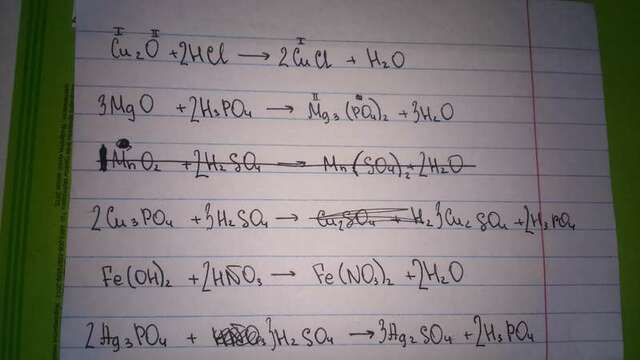 I II
Cu₂O + 2HCl → 2CuCl + H₂O
3MgO + 2H₃PO₄ → Mg₃(PO₄)₂ + 3H₂O
MnO₂ + 2H₂SO₄ → Mn(SO₄)₂ + 2H₂O
2Cu₃PO₄ + 3H₂SO₄ → Cu₂SO₄ + H₂ 3Cu₂SO₄ + 2H₃PO₄
Fe(OH)₂ + 2HNO₃ → Fe(NO₃)₂ + 2H₂O
2Ag₃PO₄ + 3H₂SO₄ → 3Ag₂SO₄ + 2H₃PO₄